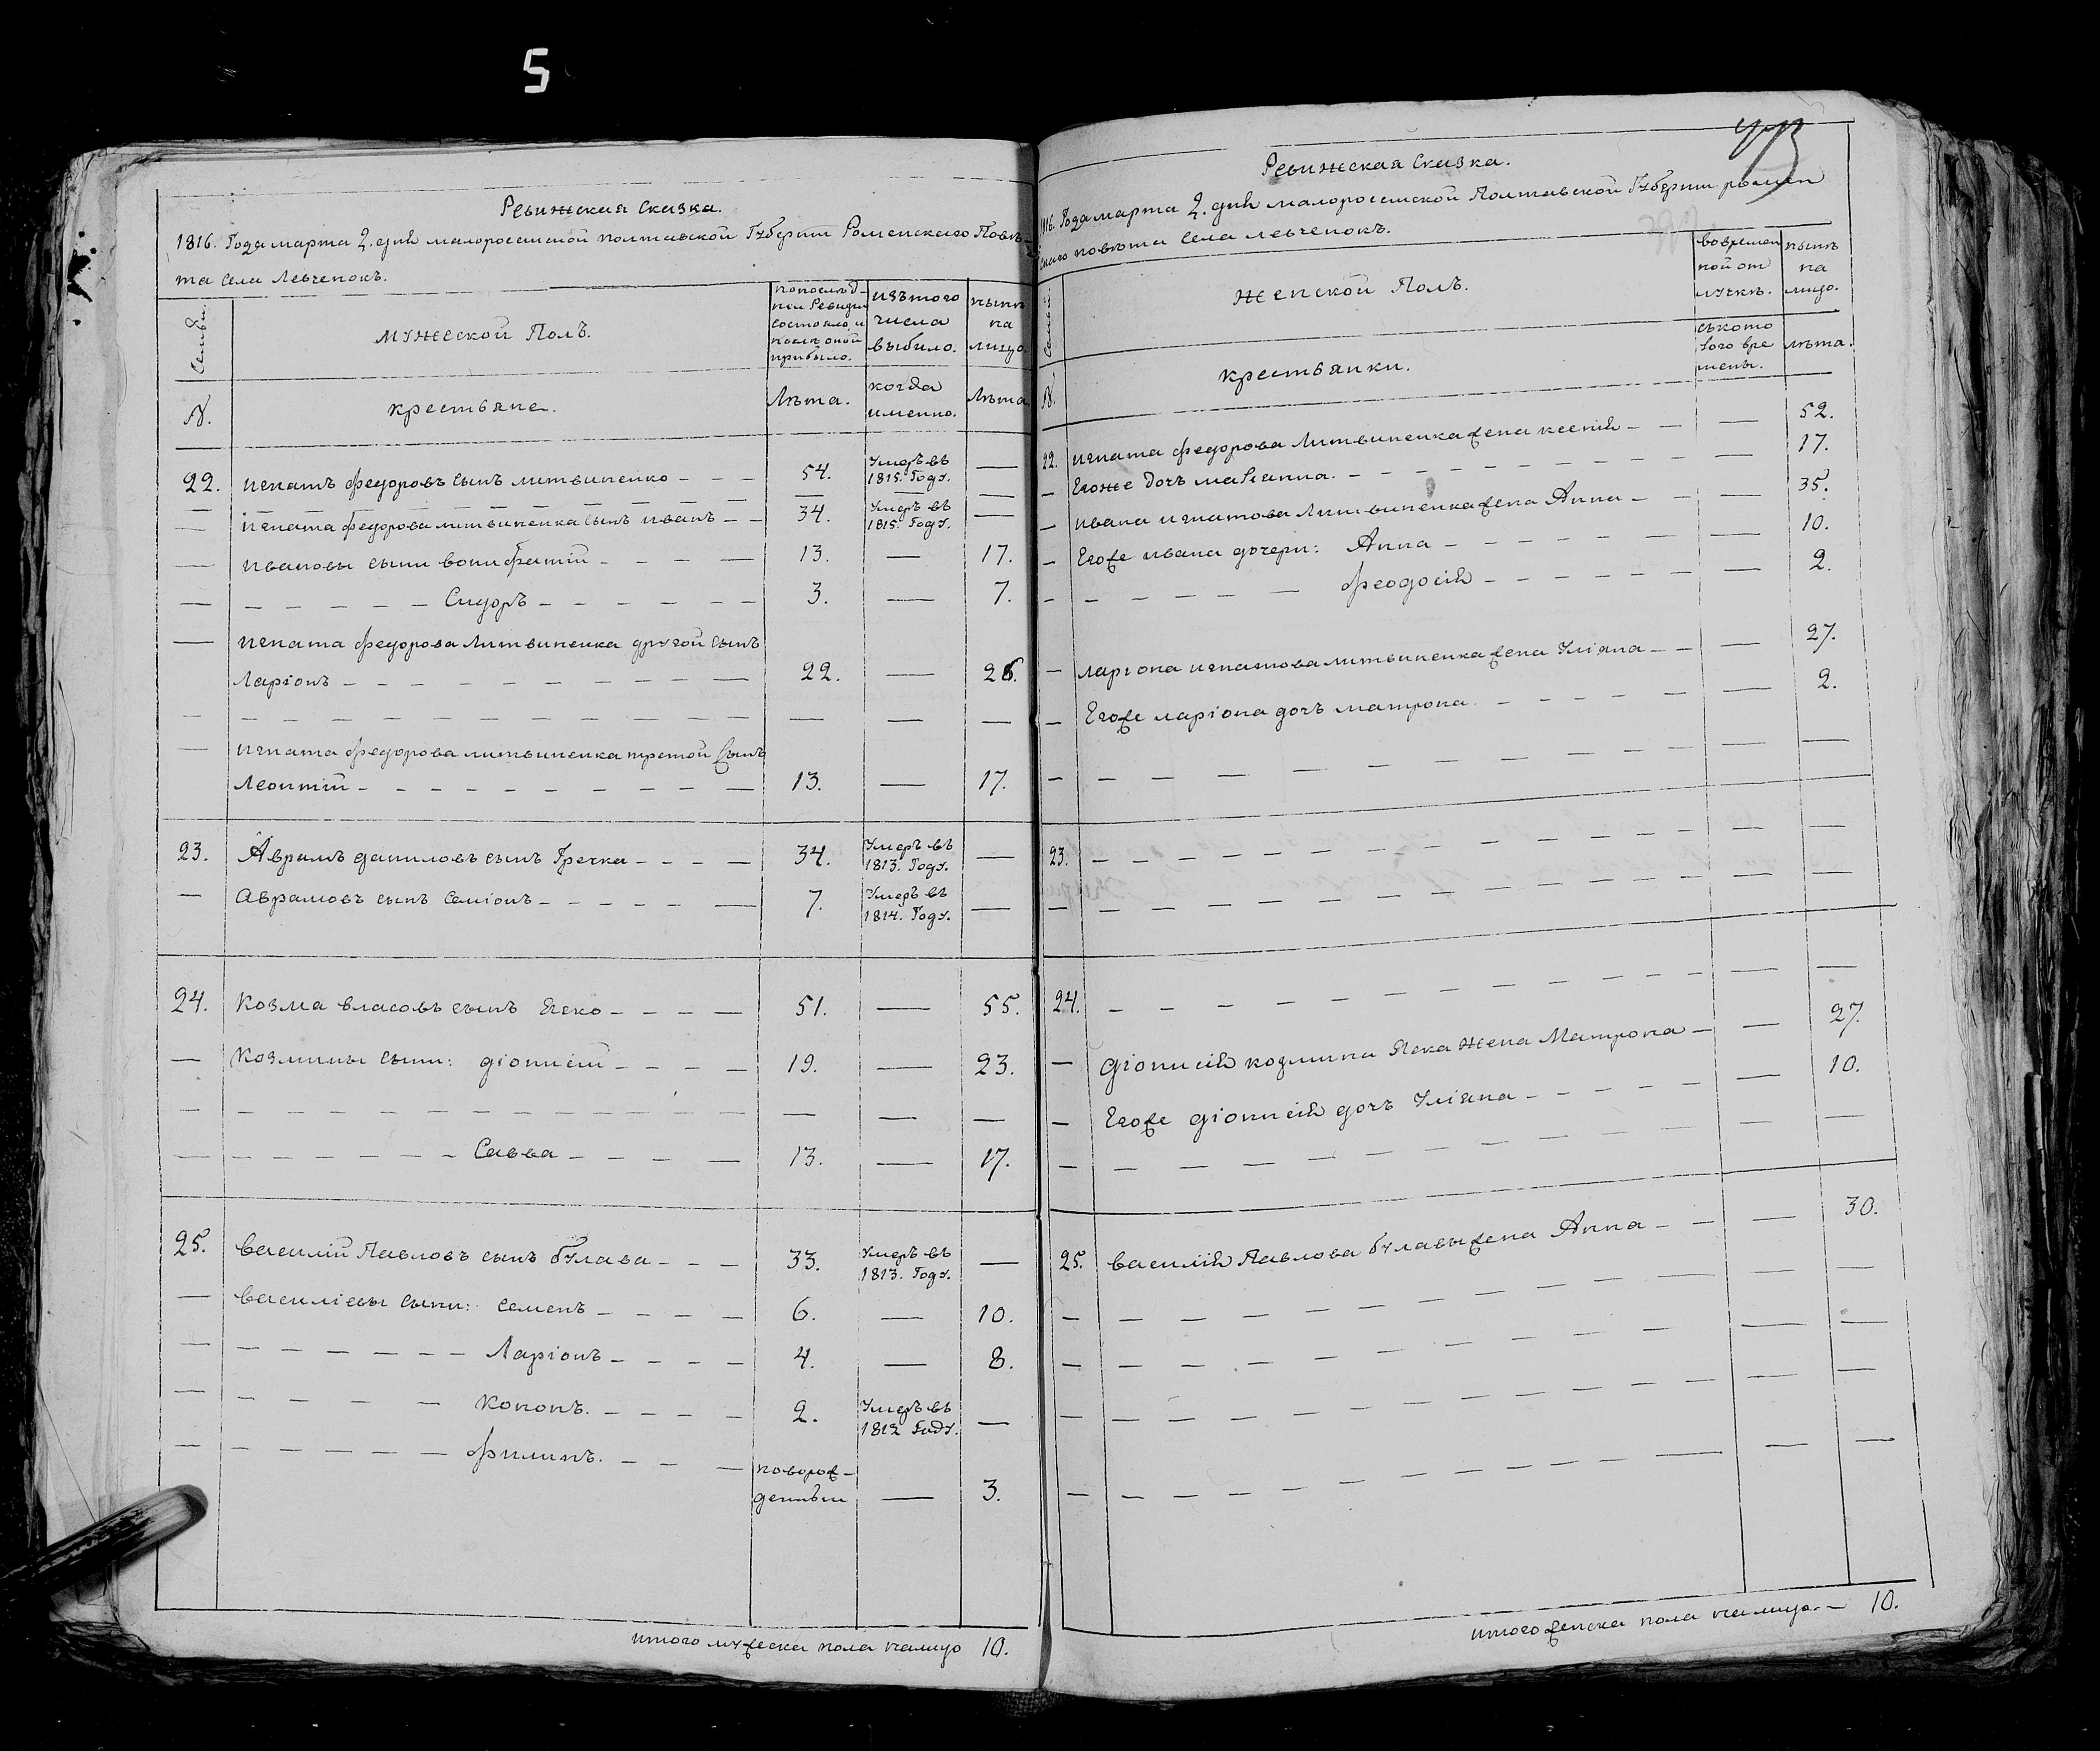 5
Ревижская Сказка.
1816. Года марта 2. дня малоросеиской полтавской Губернии Роменскаго Повѣ-
та Села Левченокъ.
Семьи.
мужеской Полъ.
попослѣд-
ней Ревизии
состояло, и
послѣ оной
прибыло.
изътого
числа
выбыло.
нынѣ
на
лицо.
N.
крестьяне.
Лѣта.
когда
именно.
Лѣта.
22. игнатъ федоровъ сынъ литвиненко 54. Умеръ въ 1815. Году.
игната федорова литвиненка сынъ иванъ 34. Умеръ въ 1815. Году.
ивановы сыни вонифатій 13. 17.
Сидоръ 3. 7.
игната федорова литвиненка другой сынъ
Ларіонъ 22. 26.
игната федорова литвиненка третой сынъ
Леонтій 13. 17.
23. Аврамъ даниловъ сынъ Гречка 34. Умеръ въ 1813. Году.
Аврамовъ сынъ Семіонъ 7. Умеръ въ 1814. Году.
24. Козма власовъ сынъ Яско 51. 55.
Козмины сыни: діонисій 19. 23.
Савва 13. 17.
25. василій Павловъ сынъ булава 33. Умеръ въ 1813. Году.
василіевы сыни: семенъ 6. 10.
Ларіонъ 4. 8.
кононъ. 2. Умеръ въ 1812 Году.
филипъ.
новорож-
денъи 3.
итого мужеска пола налицо 10.
Ревижская Сказка.
1816. Года марта 2. дня малоросеиской Полтавской Губернии ромен
скаго повѣта Села левченокъ.
Семьи.
женской Полъ.
вовремен
ной от
лучкѣ.
нынѣ
на
лицо.
N.
крестьянки.
съкото
рого вре
мены.
лѣта.
22. игната федорова литвиненка жена ксенія 52.
Егоже дочъ маріанна. 17.
ивана игнатова литвиненка жена Анна 35.
Егоже ивана дочери: Анна 10.
феодосія 2.
ларіона игнатова литвиненка жена Уліяна 27.
Егоже ларіона дочъ матрона 2.
23.
24.
діонисія козмина Яска жена Матрона 27.
Егоже діонисія дочъ Уліяна 10.
25. василія Павлова булавы жена Анна 30.
итого женска пола налицо. 10.